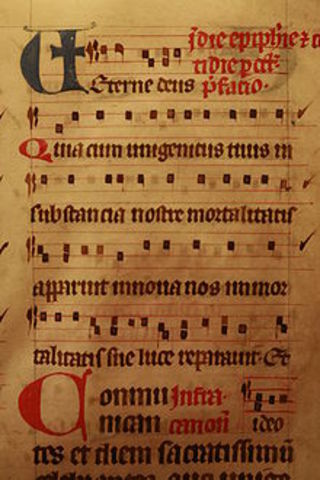 In die epiphīe et
in die p oct
Eterne deus p̄facio·
Quia cum unigenitus tuus in
substancia nostre mortalitatis
apparuit innova nos inmor
talitatis sue luce reparauit· Et
Commu Infra·
nican canoñ ideo
tes et diem sacratissimū